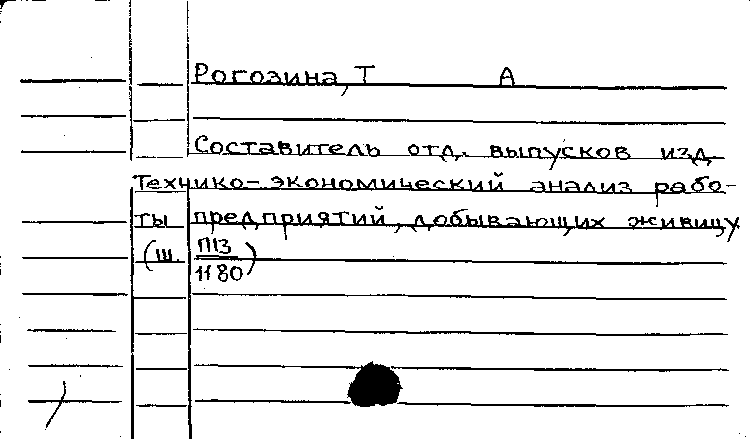 Рогозина, Т А
Составитель отд. выпусков изд.
Технико-экономический анализ рабо-
ты предприятий, добывающих живицу
(ш. П13/1180)